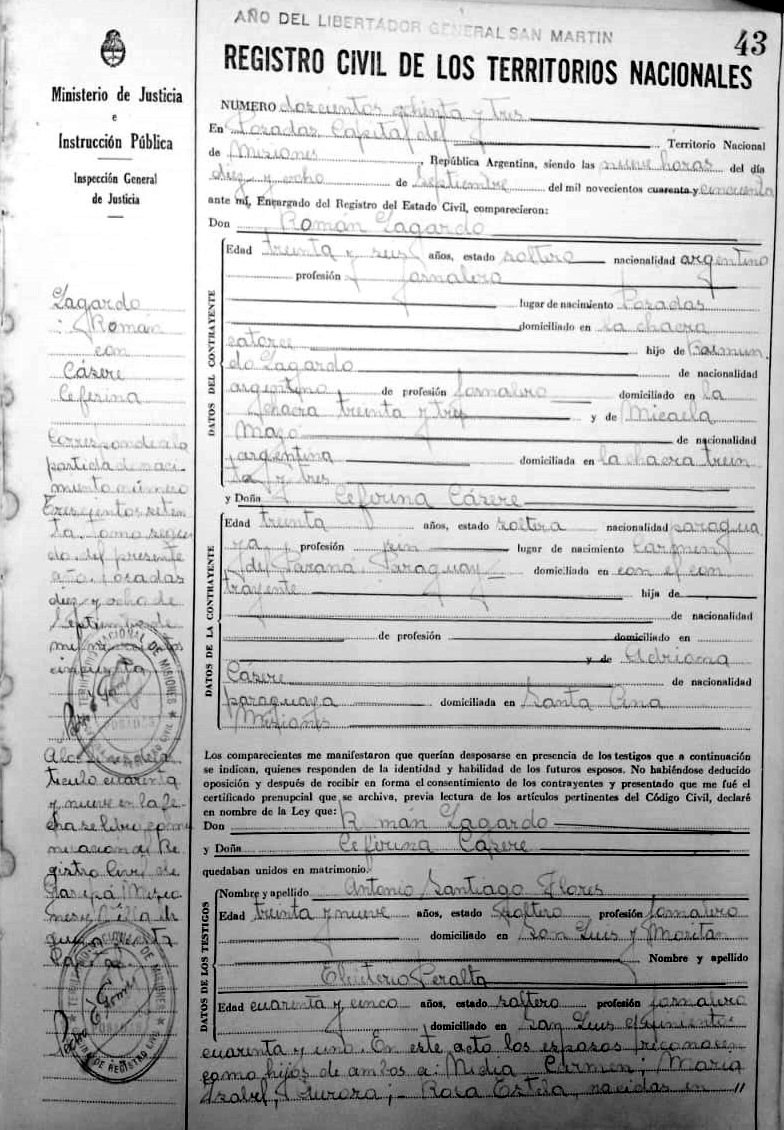 AÑO DEL LIBERTADOR GENERAL SAN MARTIN
43
REGISTRO CIVIL DE LOS TERRITORIOS NACIONALES
Ministerio de Justicia
e
Instrucción Pública
Inspección General
de Justicia
Lagardo
Román
con
Cázere
Ceferina
Corresponde a la
partida de naci-
miento número
Trescientos seten
ta, tomo segun
do del presente
año. Posadas
diez y ocho de
Septiembre de
mil novecientos
cincuenta
A los fines del a
tículo cuarenta
y nueve en la fe
cha se libró comu
nicación al Re
gistro Civil de
NUMERO doscientos ochenta y tres
En Posadas Capital del Territorio Nacional
de Misiones, República Argentina, siendo las nueve horas del día
diez y ocho de Septiembre del mil novecientos cuarenta y cincuenta
ante mí, Encargado del Registro del Estado Civil, comparecieron:
Don Román Lagardo
DATOS DEL CONTRAYENTE
Edad treinta y seis años, estado soltero nacionalidad argentino
profesión jornalero
lugar de nacimiento Posadas
domiciliado en la chacra
catorce hijo de Rasmun
do Lagardo de nacionalidad
argentino, de profesión jornalero domiciliado en la
chacra treinta y tres y de Micaela
Mazó de nacionalidad
argentina domiciliada en la chacra trein
ta y tres
y Doña Ceferina Cázere
DATOS DE LA CONTRAYENTE
Edad treinta años, estado soltera nacionalidad paragua
ya, profesión sin lugar de nacimiento Carmen
del Paraná, Paraguay domiciliada en con el con
trayente hija de
de nacionalidad
de profesión domiciliado en
y de Adriana
Cázere de nacionalidad
paraguaya domiciliada en Santa Ana
Misiones
Los comparecientes me manifestaron que querían desposarse en presencia de los testigos que a continuación
se indican, quienes responden de la identidad y habilidad de los futuros esposos. No habiéndose deducido
oposición y después de recibir en forma el consentimiento de los contrayentes y presentado que me fué el
certificado prenupcial que se archiva, previa lectura de los artículos pertinentes del Código Civil, declaré
en nombre de la Ley que:
Don Román Lagardo
y Doña Ceferina Cázere
quedaban unidos en matrimonio.
DATOS DE LOS TESTIGOS
Nombre y apellido Antonio Santiago Flores
Edad treinta y nueve años, estado soltero profesión jornalero
domiciliado en San Luis y Moritan
Nombre y apellido
Eleuterio Peralta
Edad cuarenta y cinco años, estado soltero profesión jornalero
domiciliado en San Luis doscientos
cuarenta y uno. En este acto los esposos reconocen
como hijos de ambos a: Nidia Carmen; Maria
Isabel; Aurora; Rosa Estela, nacidas en "